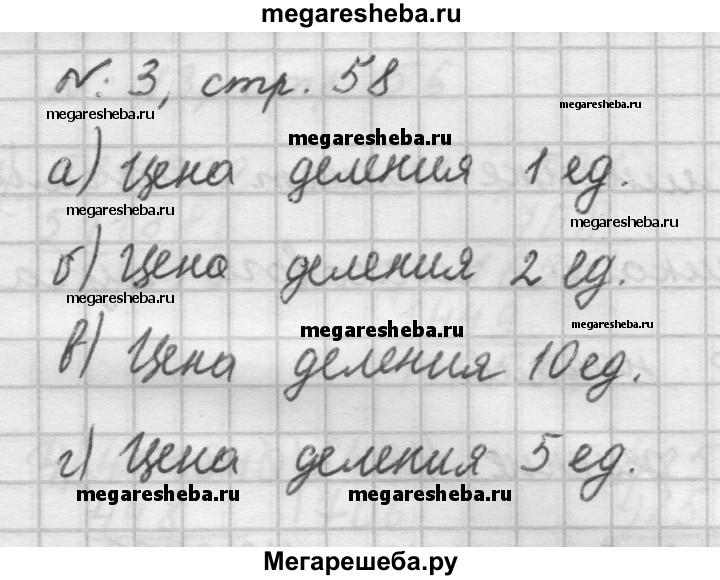 megaresheba.ru
№ 3, стр. 58
megaresheba.ru megaresheba.ru
megaresheba.ru
а) Цена деления 1 ед.
megaresheba.ru megaresheba.ru
б) Цена деления 2 ед.
megaresheba.ru
megaresheba.ru megaresheba.ru
в) Цена деления 10 ед.
г) Цена деления 5 ед.
megaresheba.ru megaresheba.ru
Мегарешеба.ру